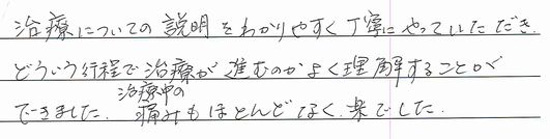 治療についての説明をわかりやすく丁寧にやっていただき、
どういう行程で治療が進むのかよく理解することが
できました。治療中の痛みもほとんどなく、楽でした。